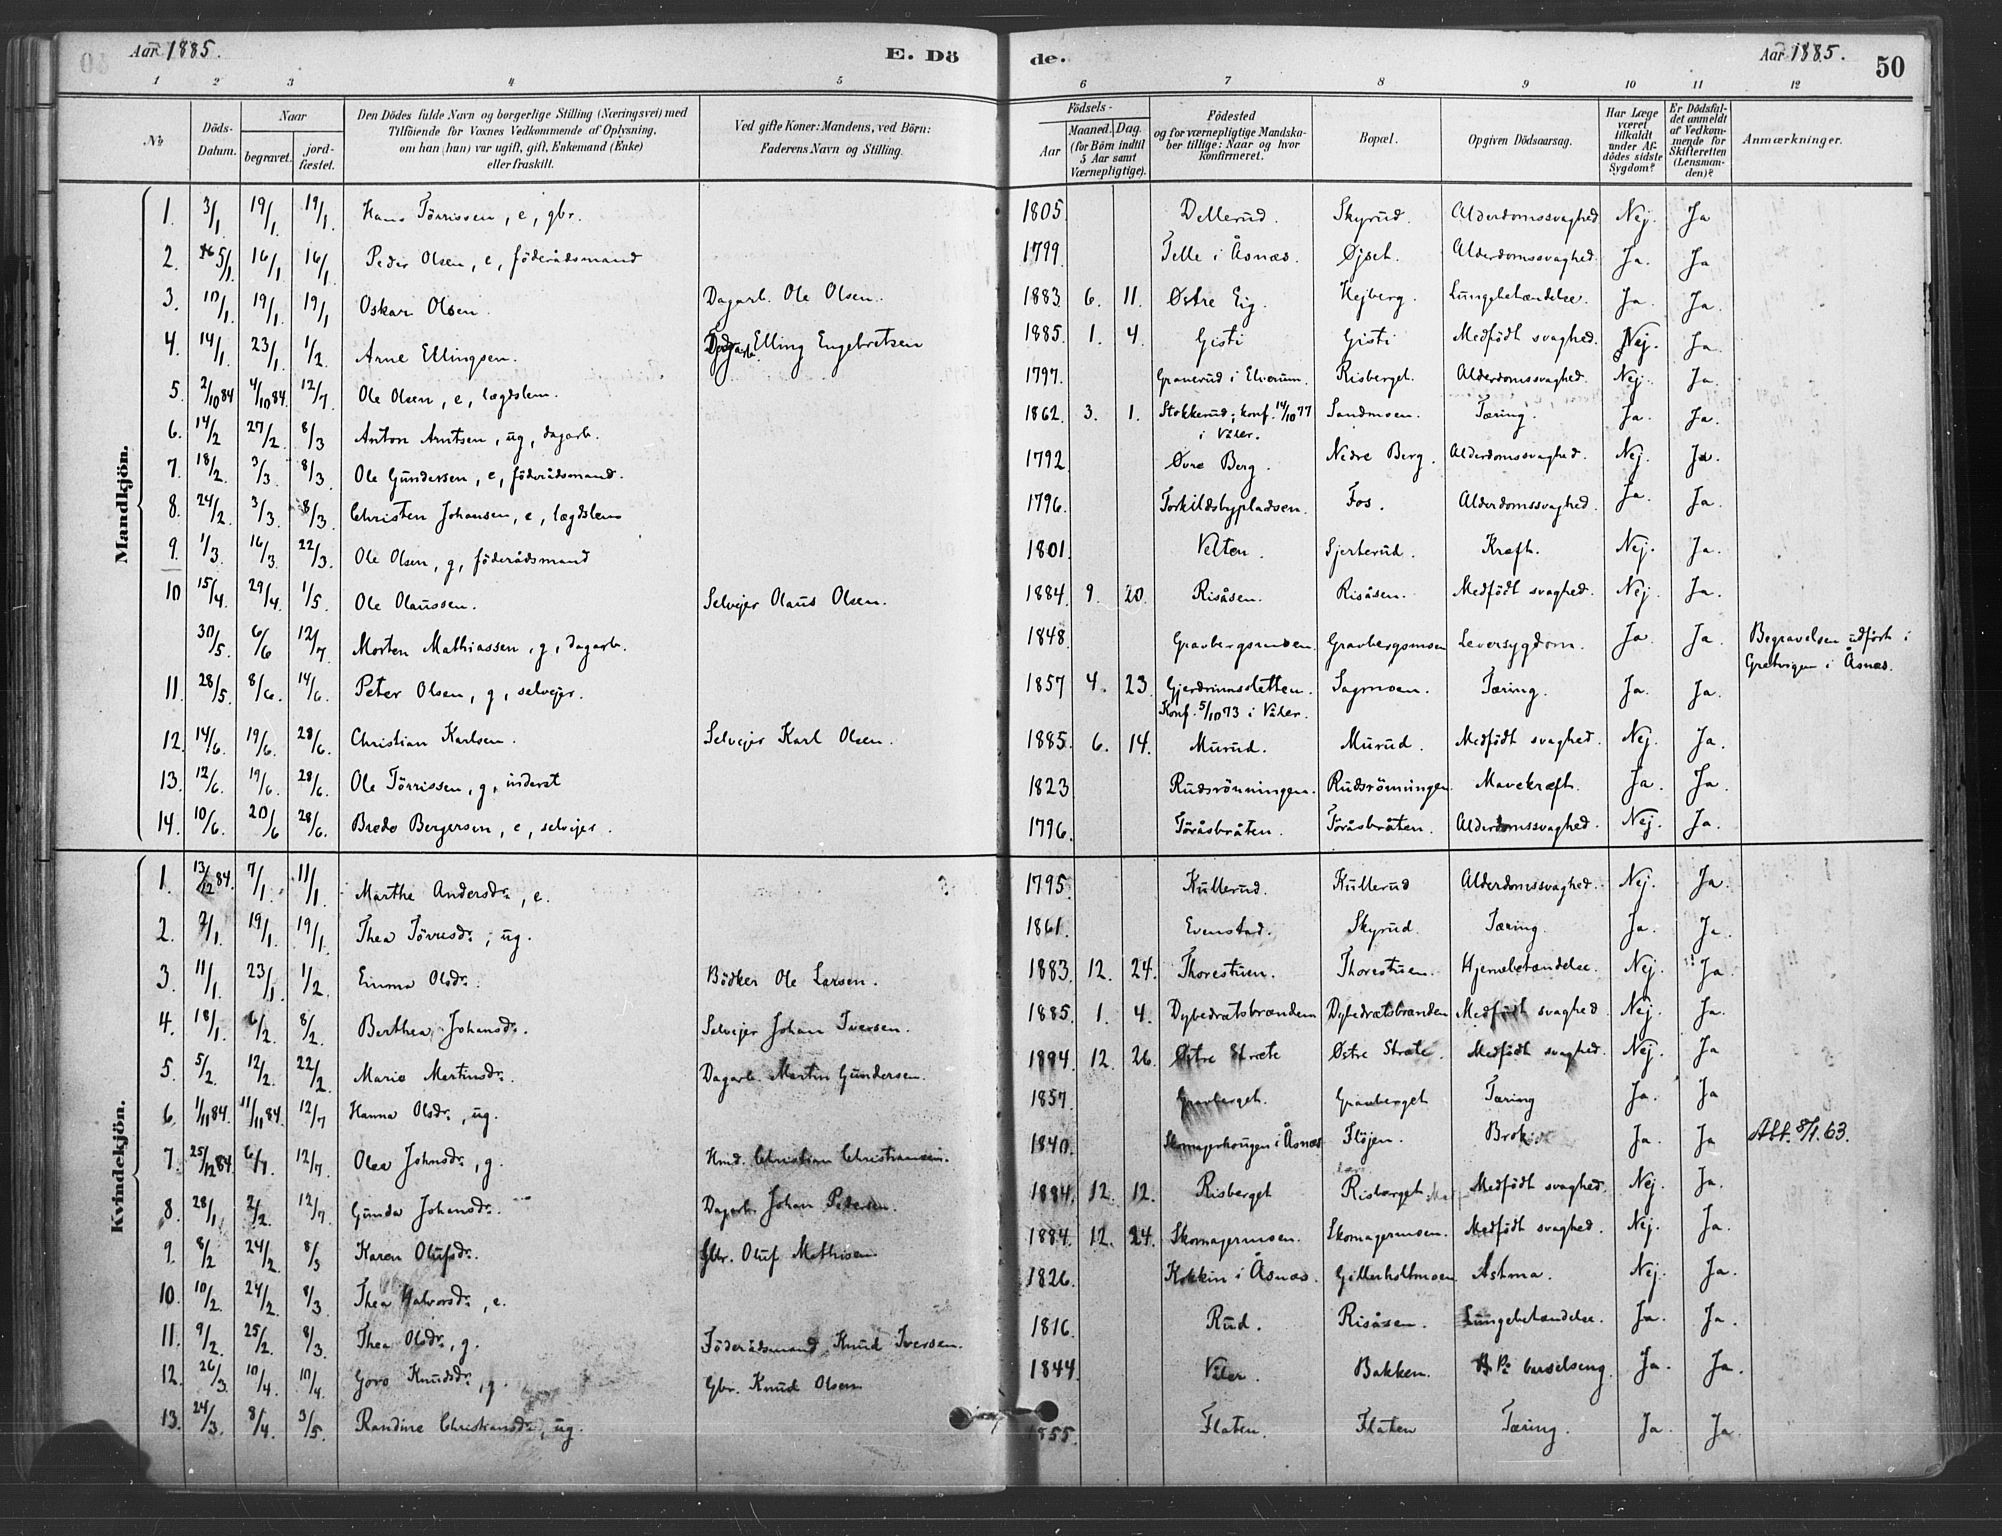 Aar 1885. E. Dö de. Aar 1885. 50
1 2 3 4 5 6 7 8 9 10 11 12
No
Döds-Datum.
Naar
begravet.
jordfæstet.
Den Dödes fulde Navn og borgerlige Stilling (Næringsvei) med
Tilföiende for Voxnes Vedkommende af Oplysning,
om han (hun) var ugift, gift, Enkemand (Enke)
eller fraskilt.
Ved gifte Koner: Mandens, ved Börn:
Faderens Navn og Stilling.
Födsels-
Aar
Maaned. Dag.
(for Börn indtil
5 Aar samt
Værnepligtige).
Födested
og for værnepligtige Mandska-
ber tillige: Naar og hvor
konfirmeret.
Bopæl.
Opgiven Dödsaarsag.
Har Læge
været
tilkaldt
under Af-
dödes sidste
Sygdom?
Er Dödsfal-
det anmeldt
af Vedkom-
mende for
Skifteretten
(Lensman-
den)?
Anmærkninger.
Mandkjön.
1. 3/1 19/1 19/1 Hans Törrissen, e, gbr. 1805. Dellerud. Skyrud. Alderdomssvaghed Nej. Ja
2. 5/1. 16/1 16/1 Peder Olsen, e, föderådsmand 1799. Telle i Åsnæs. Øjset. Alderdomssvaghed. Ja. Ja
3. 10/1. 19/1. 19/1 Oskar Olsen. Dagarb. Ole Olsen. 1883 6. 11. Østre Eig. Hejberg. Lungebetændelse. Ja. Ja.
4. 14/1. 23/1 1/2 Arne Ellingsen. Dagarb. Elling Engebretsen 1885. 1. 4. Gisti Gisti Medfödt svaghed. Nej. Ja.
5. 2/10 84 4/10 84. 12/7 Ole Olsen, e, lægdslem. 1797. Granerud i Elverum. Risberget. Alderdomssvaghed. Nej. Ja.
6. 14/2 27/2. 8/3 Anton Arntsen, ug, dagarb. 1862 3. 1. Stokkerud; konf. 14/10 77 Sandmoen. Tæring. Ja. Ja.
i Våler.
7. 18/2. 3/3. 8/3 Ole Gundersen, e, föderådsmand. 1792 Øvre Berg. Nedre Berg. Alderdomssvaghed. Nej. Ja.
8. 24/2 3/3. 8/3. Christen Johansen, e, lægdslem 1796. Torkildsbypladsen. Fos. Alderdomssvaghed. Ja. Ja.
9. 1/3. 16/3. 22/3. Ole Olsen, g, föderådsmand 1801. Velten. Sjerterud. Kræft. Nej. Ja.
10 15/4. 29/4. 1/5. Ole Olaussen. Selvejer Olaus Olsen. 1884. 9. 20. Risåsen. Risåsen. Medfödt svaghed. Nej. Ja.
30/5. 6/6 12/7 Morten Mathiassen, g, dagarb. 1848. Gravbergsmoen Gravbergsmoen Leversygdom. Ja. Ja. Begravelsen udført i
Gretvigen i Åsnæs.
11. 28/5 8/6. 14/6. Peter Olsen, g, selvejer. 1857 4. 23. Gjerdrumssletten. Sagmoen. Tæring. Ja. Ja.
Konf. 5/10 73 i Våler.
12. 14/6. 19/6. 28/6. Christian Karlsen. Selvejer Karl Olsen. 1885. 6. 14. Murud. Murud. Medfödt svaghed. Nej. Ja.
13. 12/6. 19/6. 28/6. Ole Törrissen, g, inderst 1823 Rudsrönningen. Rudsrönningen. Mavekræft. Ja. Ja.
14. 10/6. 20/6 28/6. Bredo Bergersen, e, selvejer. 1796. Toråsbråten. Toråsbråten. Alderdomssvaghed. Nej. Ja.
Kvindekjön.
1. 13/12 84. 7/1. 11/1 Marthe Andersdr., e. 1795. Kullerud. Kullerud Alderdomssvaghed. Nej. Ja.
2. /1. 19/1. 19/1. Thea Törresdr., ug. 1861. Evenstad. Skyrud. Tæring. Ja. Ja.
3. 11/1. 23/1. 1/2. Emma Olsdr. Bödker Ole Larsen. 1883. 12. 24. Thorestuen. Thorestuen. Hjernebetændelse. Nej. Ja.
4. 18/1. 6/2. 8/2. Berthea Johansdr. Selvejer Johan Iversen. 1885. 1. 4. Dybedrætsbrænden Dybedrætsbrænden Medfödt svaghed. Nej. Ja.
5. 5/2. 12/2. 22/2. Marie Martinsdr. Dagarb. Martin Gundersen. 1884 12. 26. Østre Stræte Østre Stræte. Medfödt svaghed. Nej. Ja
6. 1/11 84. 11/11 84. 12/7 Hanna Olsdr., ug. 1857. Gravberget. Gravberget Tæring Ja. Ja
7. 25/12 84. 6/1. 12/7. Olea Johnsdr., g. Hmd. Christian Christiansen. 1840. Skomagerhougen i Åsnæs Flöjen. Brok. Ja. Ja Att. 8/1. 63.
8. 28/1. 2/2. 12/7 Gunda Johansdr. Dagarb. Johan Pedersen. 1884. 12. 12. Risberget Risberget Medfödt svaghed. Nej. Ja.
9. 8/2 24/2. 8/3 Karen Olufsdr. Gbr. Oluf Mathisen 1884. 12. 24. Skomagermoen. Skomagermoen. Medfödt svaghed. Nej. Ja.
10. 10/2. 24/2. 8/3 Thea Halvorsdr., e. 1826. Kokkin i Åsnæs. Gitterholtmoen Astma. Nej. Ja.
11. 9/2. 25/2. 8/3. Thea Olsdr., g. Föderådsmand Knud Iversen. 1816. Rud. Risåsen. Lungebetændelse. Ja. Ja.
12. 26/3. 10/4. 10/4. Goro Knudsdr., g. Gbr. Knud Olsen 1844. Våler. Bakken. På barselseng. Ja. Ja.
13. 24/3. 8/4. 3/5. Randine Christiansdr., ug. 1855. Flaten. Flaten Tæring. Ja. Ja.